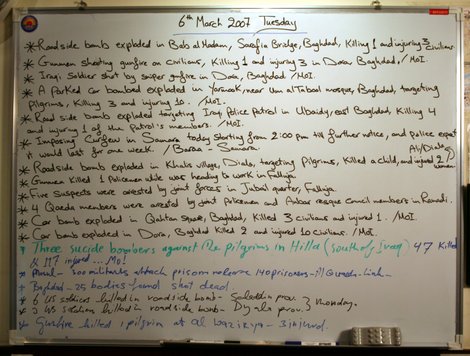 6th March 2007 Tuesday
* Roadside bomb exploded in Bab al Madam, Saafia Bridge, Baghdad, Killing 1 and injuring 3 civilians
* Gunmen shooting gunfire on civilians, Killing 1 and injuring 3 in Dora, Baghdad, /MoI.
* Iraqi Soldier shot by sniper gunfire in Dora, Baghdad /MoI.
* A Parked car bombed exploded in Yarmouk, near Um al Tabool mosque, Baghdad, targeting
Pilgrims, Killing 3 and injuring 10. /MoI.
* Road side bomb exploded targeting Iraqi Police Patrol in Ubaidy, east Baghdad, Killing 4
and injuring 1 of the Patrol's members. /MoI.
* Imposing Curfew in Samara today starting from 2:00 pm till further notice, and police expect
it would last for one week. / Samara
* Roadside bomb exploded in Khalis village, Diala, targeting Pilgrims, Killed a child, and injured 2 women
* Gunmen Killed 1 Policeman while was heading to work in Falluja.
* Five Suspects were arrested by joint forces in Jubail quarter, Falluja.
* 4 Qaeda members were arrested by joint Policemen and Anbar rescue council members in Ramadi.
* Car bomb exploded in Qahtan square, Baghdad, Killed 3 civilians and injured 1. /MoI.
* Car bomb exploded in Dora, Baghdad Killed 2 and injured 10 civilians. /MoI.
* Three suicide bombers against the pilgrims in Hilla (south of Iraq) 47 Killed
& 117 injured ... MoI
* 300 militants attack prison 140 prisoners - Qaeda - link -
* Baghdad - 25 bodies found shot dead.
* 6 US soldiers killed in roadside bomb - Salahdin prov.
* 3 US soldiers killed in roadside bomb - Dyala prov. } monday.
* Gunfire killed 1 pilgrim at al - 3 injured.